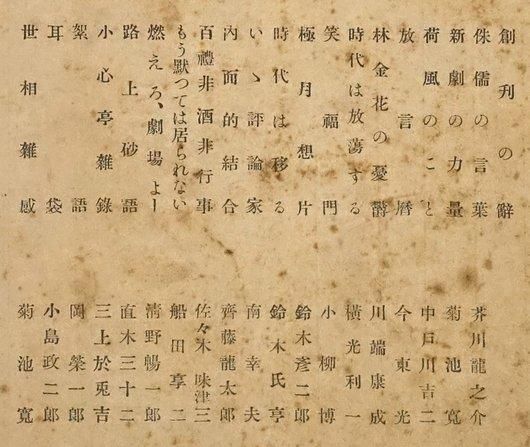 創刊の辭
侏儒の言葉 芥川龍之介
新劇の力量 菊池寛
荷風のこと 中戸川吉二
放言暦 今東光
林金花の憂欝 川端康成
時代は放蕩する 横光利一
笑福門 小柳博
極月想片 鈴木彥二郎
時代は移る 鈴木氏亨
いゝ評論家 南幸夫
內面的結合 齊藤龍太郎
百禮非酒非行事 佐々木味津三
もう默つては居られない 船田享二
燃えろ、劇場よー 淸野暢一郎
路上砂語 直木三十二
小心亭雜錄 三上於兎吉
絮語 岡榮一郎
耳袋 小島政二郎
世相雜感 菊池寛